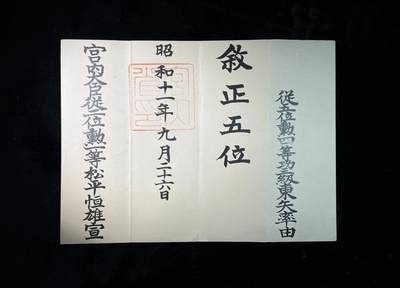 從五位勲四等功五級東矢率由
敍正五位
昭和十一年九月二十六日
宮内大臣從二位勲一等松平恒雄宣